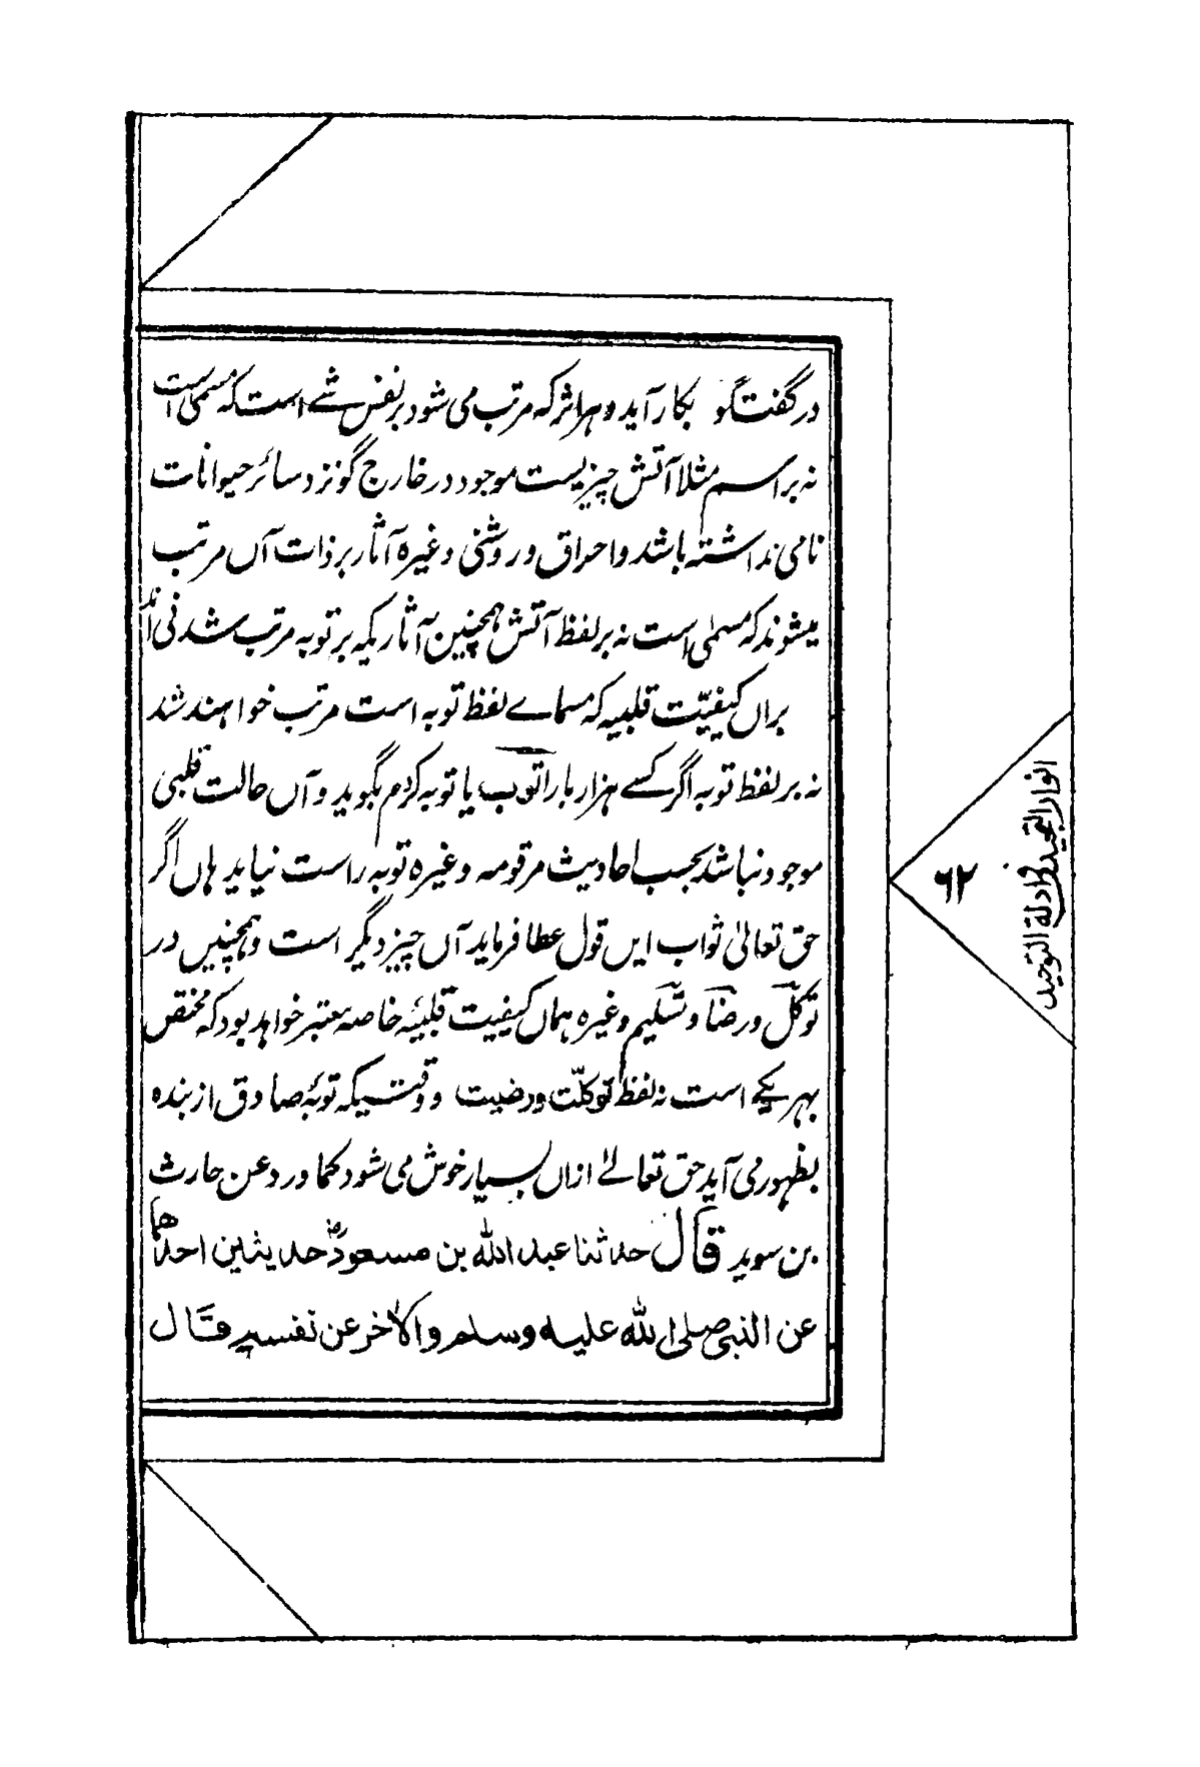 در گفتگو بکار آید و هر اثر که مرتب می شود بر نفس شے است که مسمی است
نه بر اسم مثلا آتش چیزیست موجود در خارج گو نزد سائر حیوانات
نامی نداشته باشد و احراق و روشنی و غیره آثار بر ذات آں مرتب
میشوند که مسمیٰ است نه بر لفظ آتش همچنین آثاریکه بر توبه مرتب شدنی اند
براں کیفیّت قلبیه که مسماے لفظ توبه است مرتب خواهند شد
نه بر لفظ توبه اگر کسے هزار بار اتوب یا توبه کردم بگوید و آں حالت قلبی
موجود نباشد بحسب احادیث مرقومه و غیره توبه راست نیاید هاں اگر
حق تعالیٰ ثواب ایں قول عطا فرماید آں چیز دیگر است و همچنیں در
توکّل و رضا و تسلیم و غیره هماں کیفیت قلبیۂ خاصه معتبر خواهد بود که مختص
بهر یکے است نه لفظ توکلّت و رضیت و وقتیکه توبۂ صادق از بنده
بظهور می آید حق تعالےٰ ازاں بسیار خوش می شود کما ورد عن حارث
بن سوید قال حدثنا عبد الله بن مسعودؓ حدیثین احدهما
عن النبی صلی الله علیه وسلم والاٰخر عن نفسه قال
۶۲
انوار التمجید فی ادلة التوحید